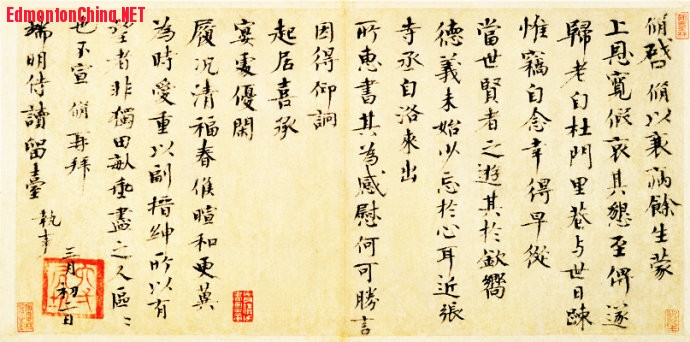 EdmontonChina.NET
脩啓脩以衰病餘生蒙
上恩寬假哀其懇至俾遂
歸老自杜門里巷与世日疎
惟竊自念幸得早從
當世賢者之遊其於欽嚮
德義未始少忘於心耳近張
寺丞自洛來出
所惠書其為感慰何可勝言
因得仰詢
起居喜承
宴處優閑
履況清福春候暄和更冀
為時愛重以副搢紳所以有
望者非獨田畝垂盡之人區〻
也不宣脩再拜
端明侍讀留臺執事
三月初二日